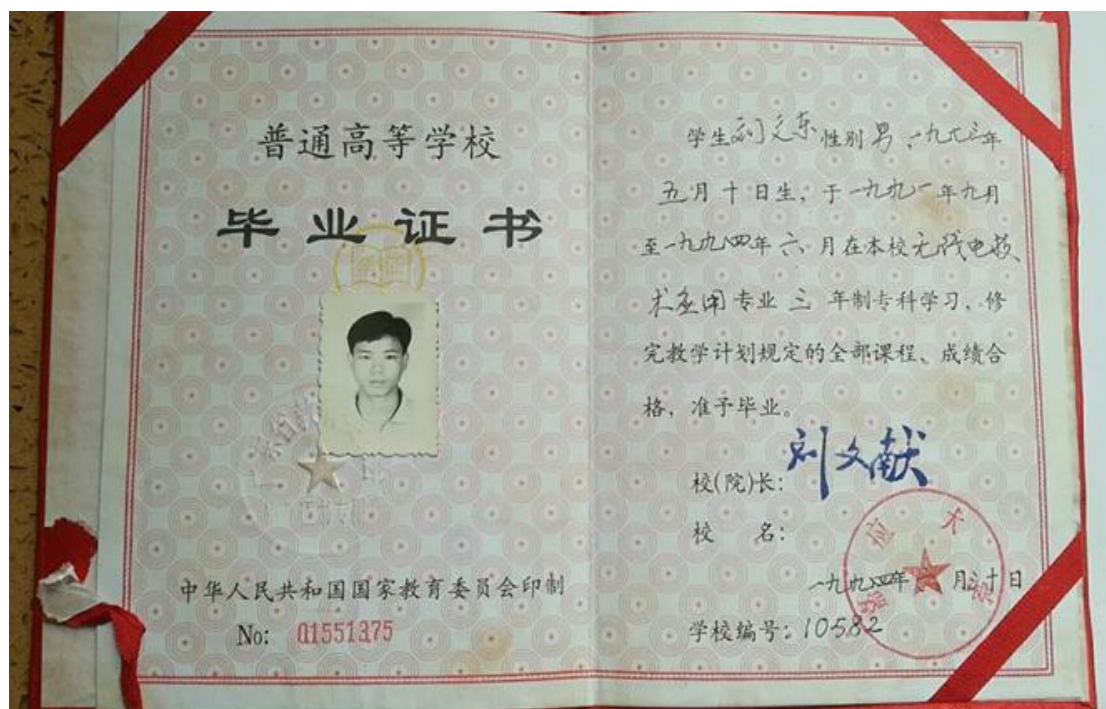 普通高等学校
毕业证书
中华人民共和国国家教育委员会印制
No: 01551375
学生刘文东性别男,一九七三年
五月十日生,于一九九一年九月
至一九九四年六月在本校无线电技
术应用专业三年制专科学习,修
完教学计划规定的全部课程、成绩合
格,准予毕业。
校(院)长:刘文献
校 名:
一九九四年 月三十日
学校编号:10582